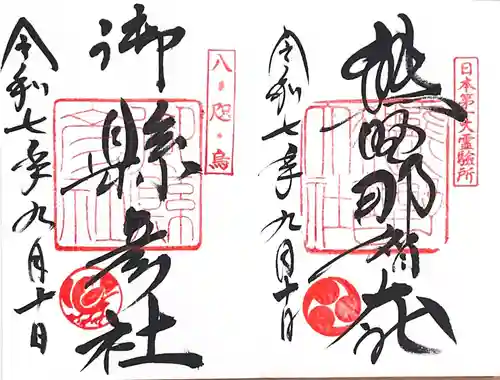 日本第一大霊験所
熊野那智大社
令和七年九月十日
八咫烏
御縣彦社
令和七年九月十日